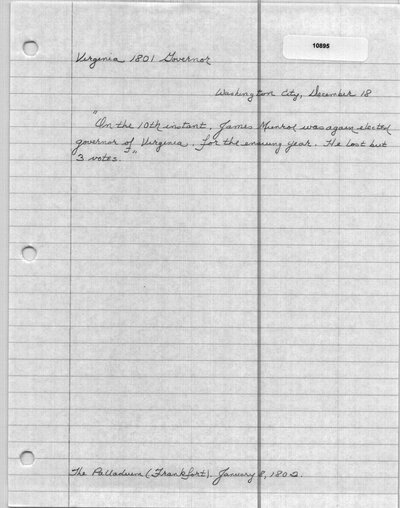 10895
Virginia 1801 Governor
Washington City, December 18
"On the 10th instant, James Munroe was again elected
governor of Virginia, for the ensuing year. He lost but
3 votes."
The Palladium (Frankfort). January 8, 1802.